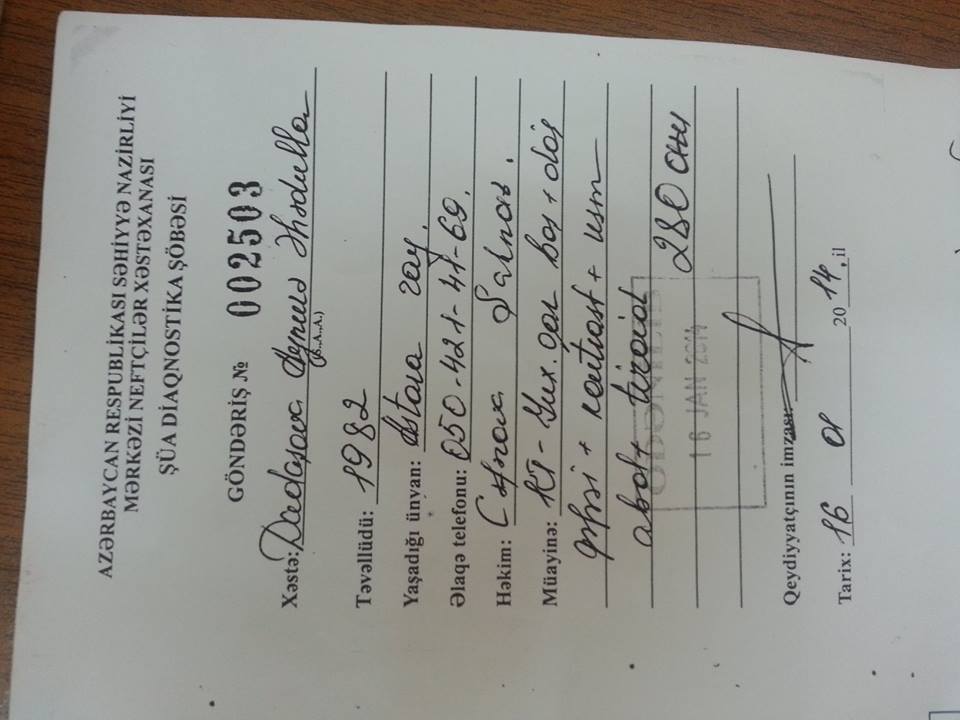 AZƏRBAYCAN RESPUBLİKASI SƏHİYYƏ NAZİRLİYİ
MƏRKƏZİ NEFTÇİLƏR XƏSTƏXANASI
ŞÜA DİAQNOSTİKA ŞÖBƏSİ
GÖNDƏRİŞ № 002503
Xəstə: Dadaşova Aynur
(S.A.A.)
Təvəllüdü: 1982
Yaşadığı ünvan: Astara ray.
Əlaqə telefonu: 050-421-41-69.
Həkim:
Müayinə: KT - Yux. qar boş + döş
qəfəsi + kontrast + usm
abd + tiroid
16 JAN 2014
280
Qeydiyyatçının imzası:
Tarix: 16 01 2014. il